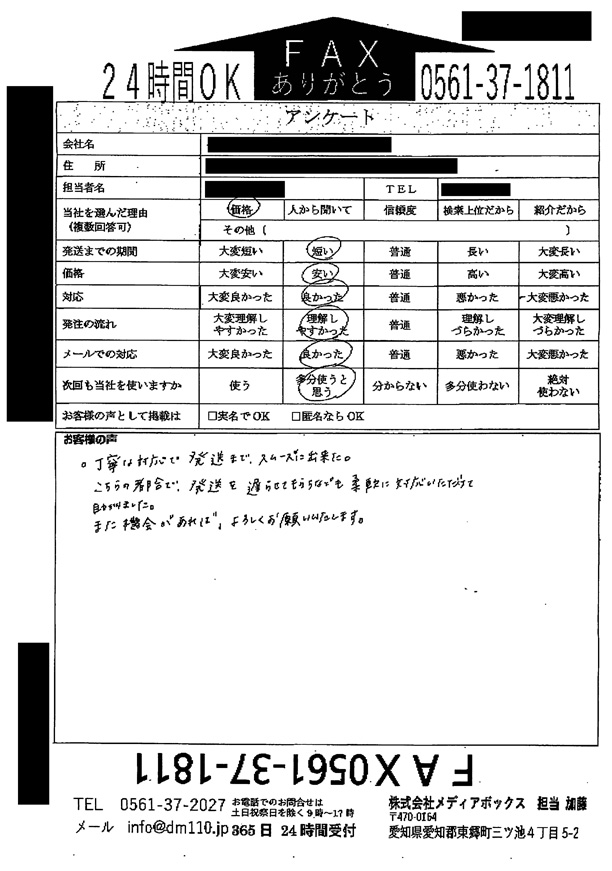 FAX
ありがとう
24時間OK
0561-37-1811
アンケート
会社名
住 所
担当者名 TEL
当社を選んだ理由 (複数回答可) 価格 人から聞いて 信頼度 検索上位だから 紹介だから
その他 ( )
発送までの期間 大変短い 短い 普通 長い 大変長い
価格 大変安い 安い 普通 高い 大変高い
対応 大変良かった 良かった 普通 悪かった 大変悪かった
発注の流れ 大変理解しやすかった 理解しやすかった 普通 理解しづらかった 大変理解しづらかった
メールでの対応 大変良かった 良かった 普通 悪かった 大変悪かった
次回も当社を使いますか 使う 多分使うと思う 分からない 多分使わない 絶対使わない
お客様の声として掲載は □実名でOK □匿名ならOK
お客様の声
。丁寧な対応で発送まで、スムーズに出来た。
こちらの都合で、発送を遅らせてもらうなども柔軟に対応いただけて
助かりました。
また機会があれば、よろしくお願いいたします。
FAX0561-37-1811
TEL 0561-37-2027 お電話でのお問合せは
土日祝祭日を除く9時~17時
メール info@dm110.jp 365日 24時間受付
株式会社メディアボックス 担当 加藤
〒470-0164
愛知県愛知郡東郷町三ツ池4丁目5-2